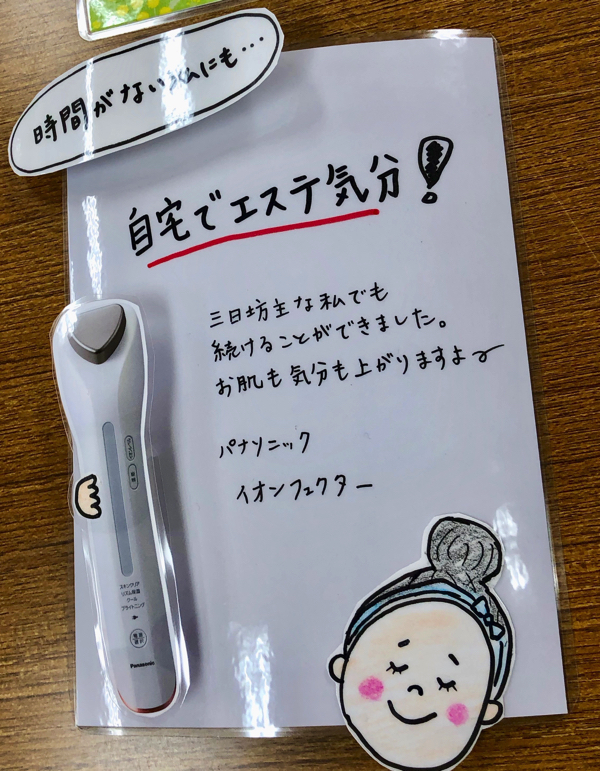 時間がない私にも…
自宅でエステ気分!
三日坊主な私でも
続けることができました。
お肌も気分も上がりますよ〜
パナソニック
イオンフェクター
スキンクリア
リズム保湿
クール
ブライトニング
Panasonic